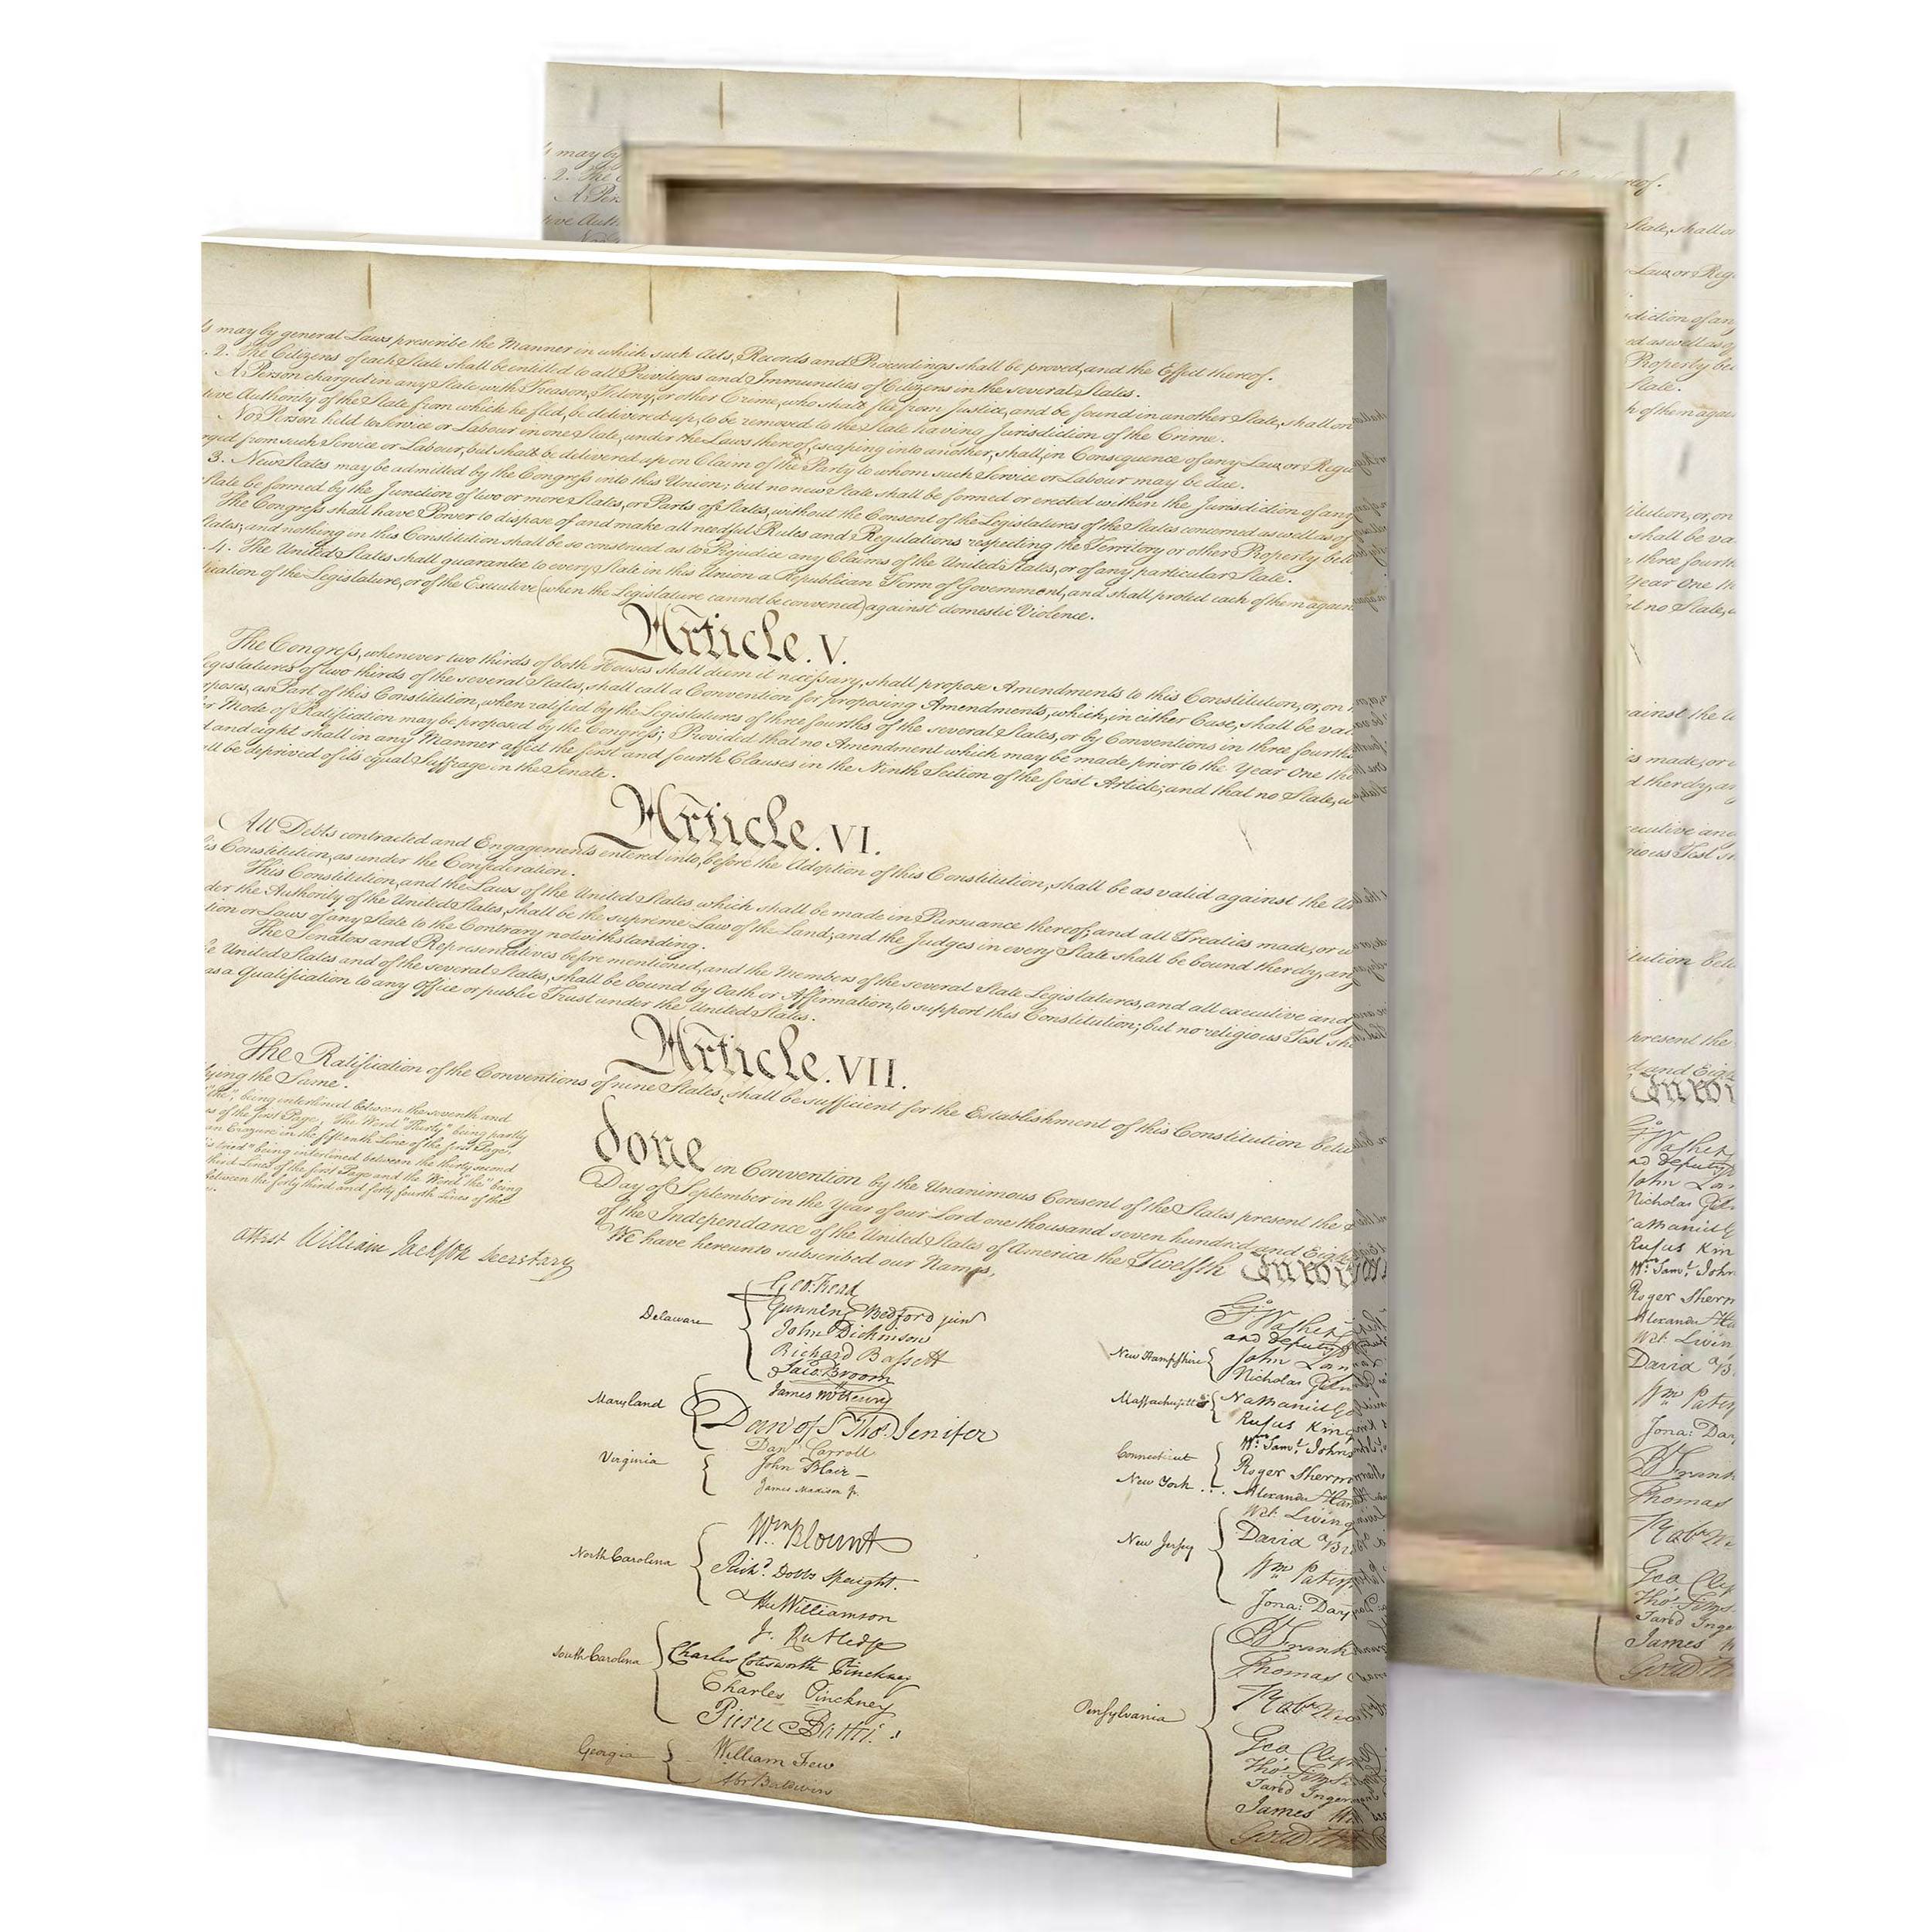 may by general Laws prescribe the Manner in which such Acts, Records and Proceedings shall be proved, and the Effect thereof.
. 2. The Citizens of each State shall be entitled to all Privileges and Immunities of Citizens in the several States.
A Person charged in any State with Treason, Felony, or other Crime, who shall flee from Justice, and be found in another State, shall on
tive Authority of the State from which he fled, be delivered up, to be removed to the State having Jurisdiction of the Crime.
No Person held to Service or Labour in one State, under the Laws thereof, escaping into another, shall, in Consequence of any Law or Regu
rged from such Service or Labour, but shall be delivered up on Claim of the Party to whom such Service or Labour may be due.
3. New States may be admitted by the Congress into this Union; but no new State shall be formed or erected within the Jurisdiction of any
State be formed by the Junction of two or more States, or Parts of States, without the Consent of the Legislatures of the States concerned as well as of
The Congress shall have Power to dispose of and make all needful Rules and Regulations respecting the Territory or other Property bel
States; and nothing in this Constitution shall be so construed as to Prejudice any Claims of the United States, or of any particular State.
. 4. The United States shall guarantee to every State in this Union a Republican Form of Government, and shall protect each of them again
lication of the Legislature, or of the Executive (when the Legislature cannot be convened) against domestic Violence.
Article. V.
The Congress, whenever two thirds of both Houses shall deem it necessary, shall propose Amendments to this Constitution, or, on
egislatures of two thirds of the several States, shall call a Convention for proposing Amendments, which, in either Case, shall be val
rposes, as Part of this Constitution, when ratified by the Legislatures of three fourths of the several States, or by Conventions in three fourths
r Mode of Ratification may be proposed by the Congress; Provided that no Amendment which may be made prior to the Year One tho
d and eight shall in any Manner affect the first and fourth Clauses in the Ninth Section of the first Article; and that no State, w
all be deprived of its equal Suffrage in the Senate.
Article. VI.
All Debts contracted and Engagements entered into, before the Adoption of this Constitution, shall be as valid against the Un
is Constitution, as under the Confederation.
This Constitution, and the Laws of the United States which shall be made in Pursuance thereof; and all Treaties made, or w
der the Authority of the United States, shall be the supreme Law of the Land; and the Judges in every State shall be bound thereby, an
tion or Laws of any State to the Contrary notwithstanding.
The Senators and Representatives before mentioned, and the Members of the several State Legislatures, and all executive and
e United States and of the several States, shall be bound by Oath or Affirmation, to support this Constitution; but no religious Test sh
as a Qualification to any Office or public Trust under the United States.
Article. VII.
The Ratification of the Conventions of nine States, shall be sufficient for the Establishment of this Constitution betw
fying the Same.
"the", being interlined between the seventh and
es of the first Page, The Word "Thirty" being partly
an Erazure in the fifteenth Line of the first Page,
is tried" being interlined between the thirty second
third Lines of the first Page and the Word "the" being
between the forty third and forty fourth Lines of the
done in Convention by the Unanimous Consent of the States present the
Day of September in the Year of our Lord one thousand seven hundred and Eigh
of the Independance of the United States of America the Twelfth In wi
We have hereunto subscribed our Names,
attest William Jackson Secretary
Delaware
Geo: Read
Gunning Bedford jun
John Dickinson
Richard Bassett
Jaco: Broom
Maryland
James McHenry
Dan of St Thos. Jenifer
Danl Carroll
Virginia
John Blair—
James Madison Jr.
North Carolina
Wm Blount
Richd. Dobbs Spaight.
Hu Williamson
South Carolina
J. Rutledge
Charles Cotesworth Pinckney
Charles Pinckney
Pierce Butler.
Georgia
William Few
Abr Baldwin
Go: Washing
and deputy
New Hampshire
John Lan
Nicholas Gilm
Massachusetts
Nathaniel Go
Rufus King
Connecticut
Wm: Saml. Johns
Roger Sherm
New York . . .
Alexander Ham
New Jersey
Wil: Living
David Br
Wm Paters
Jona: Day
Pensylvania
B Frank
Thomas
Robt Mo
Geo. Clym
Thos. FitzSi
Jared Inger
James W
Gouv M